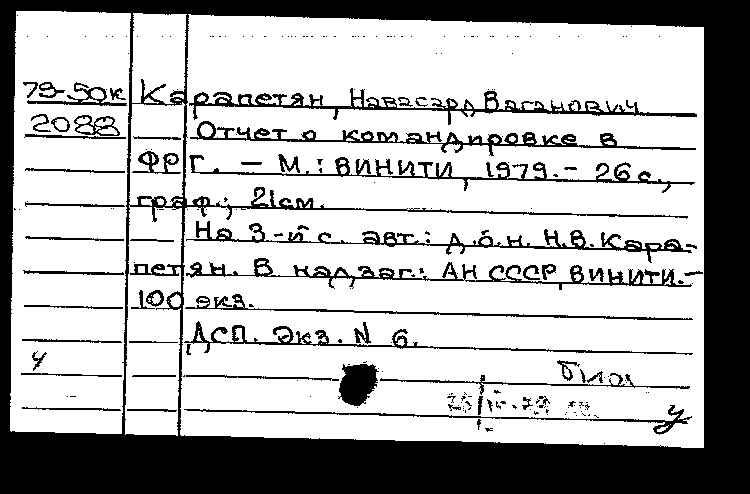 79-50к Карапетян, Навасард Ваганович
2088 Отчет о командировке в
ФРГ. - М.: ВИНИТИ, 1979. - 26 с.,
граф.; 21 см.
На 3-й с. авт.: д.б.н. Н.В. Кара-
петян. В надзаг.: АН СССР, ВИНИТИ. -
100 экз.
ДСП. Экз. N 6.
у
у